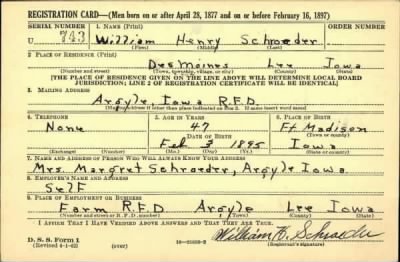 REGISTRATION CARD—(Men born on or after April 28, 1877 and on or before February 16, 1897)
SERIAL NUMBER 1. NAME (Print) ORDER NUMBER
U 743 William Henry Schroeder
(First) (Middle) (Last)
2. PLACE OF RESIDENCE (Print)
Des Moines Lee Iowa
(Number and street) (Town, township, village, or city) (County) (State)
[THE PLACE OF RESIDENCE GIVEN ON THE LINE ABOVE WILL DETERMINE LOCAL BOARD
JURISDICTION; LINE 2 OF REGISTRATION CERTIFICATE WILL BE IDENTICAL]
3. MAILING ADDRESS
Argyle, Iowa R.F.D.
[Mailing address if other than place indicated on line 2. If same insert word same]
4. TELEPHONE 5. AGE IN YEARS 6. PLACE OF BIRTH
None 47 Ft. Madison
DATE OF BIRTH (Town or county)
Feb 3 1895 Iowa
(Exchange) (Number) (Mo.) (Day) (Yr.) (State or country)
7. NAME AND ADDRESS OF PERSON WHO WILL ALWAYS KNOW YOUR ADDRESS
Mrs. Margret Schroeder, Argyle Iowa.
8. EMPLOYER'S NAME AND ADDRESS
Self
9. PLACE OF EMPLOYMENT OR BUSINESS
Farm R.F.D Argyle Lee Iowa
(Number and street or R. F. D. number) (Town) (County) (State)
I AFFIRM THAT I HAVE VERIFIED ABOVE ANSWERS AND THAT THEY ARE TRUE.
D. S. S. Form 1
(Revised 4-1-42) (over) William H. Schroeder
(Registrant's signature)